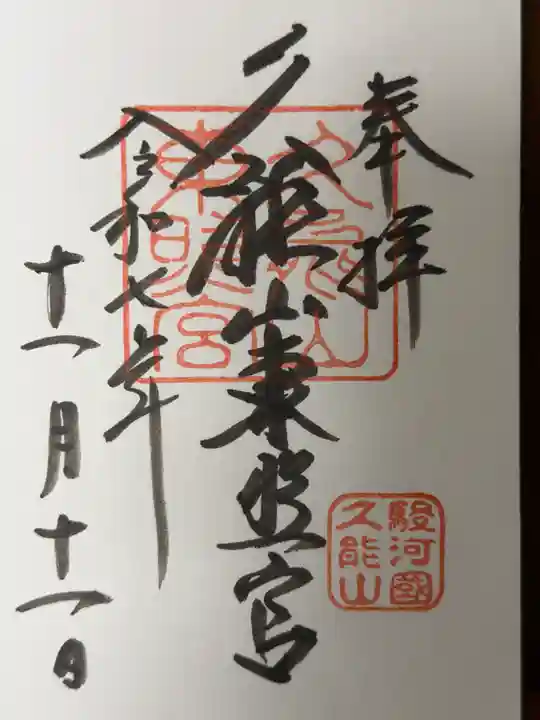 奉拝
久能山東照宮
令和七年
十一月十一日
久能山
東照宮
駿河國
久能山